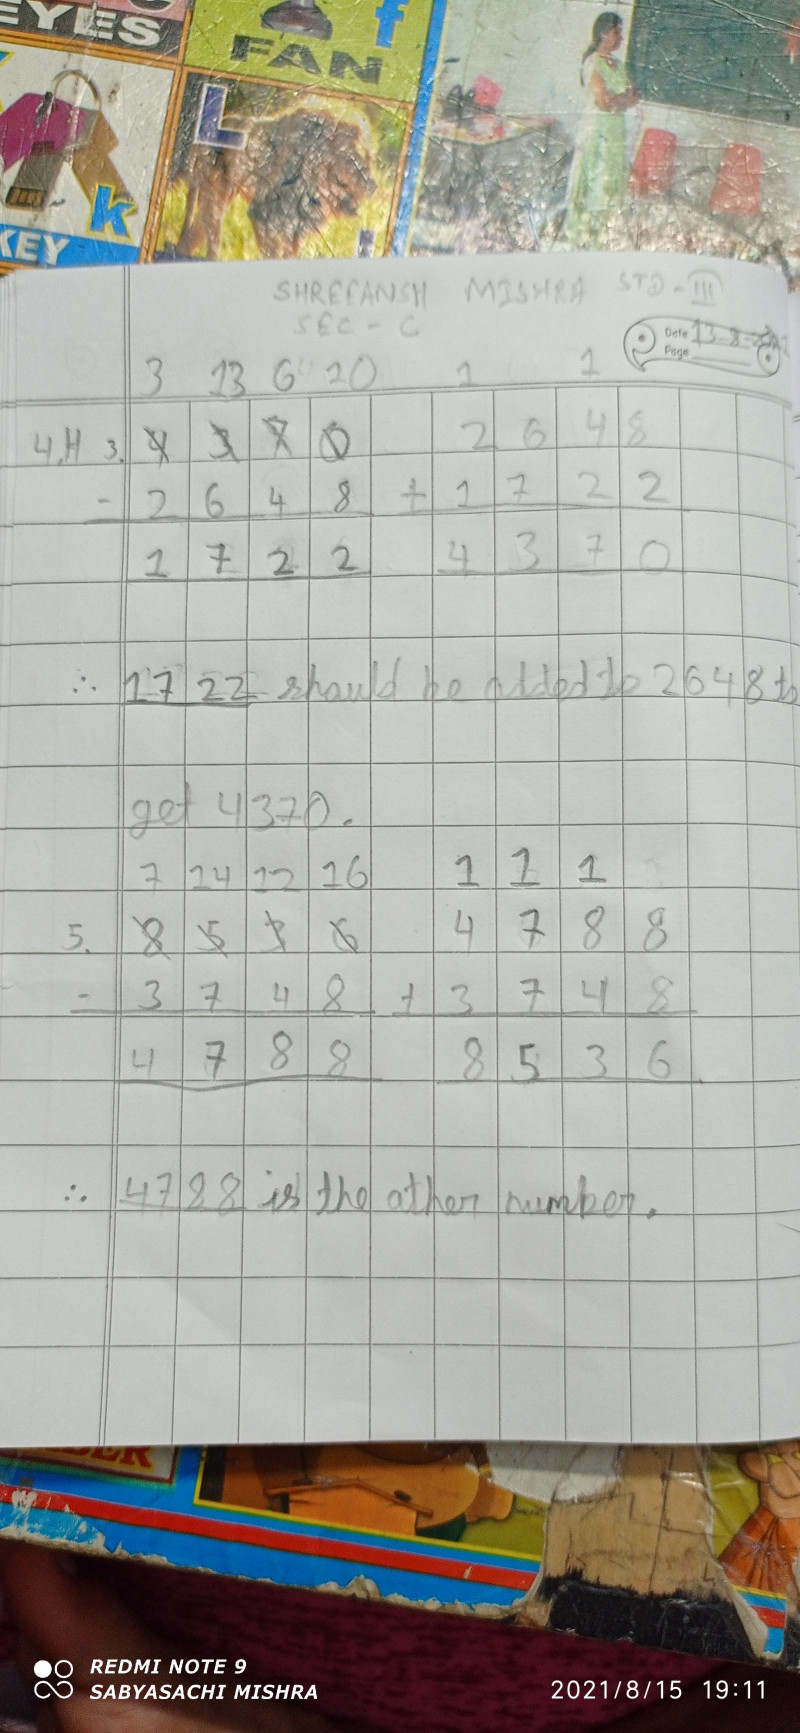 EYES
FAN
f
L
k
KEY
SHREEANSH MISHRA STD - III
SEC - C
Date 13-8-
Page
3 13 6 10 1 1
4.H 3. 4 3 7 0 2 6 4 8
- 2 6 4 8 + 1 7 2 2
1 7 2 2 4 3 7 0
∴ 1722 should be added to 2648 to
get 4370.
7 14 12 16 1 1 1
5. 8 5 3 6 4 7 8 8
- 3 7 4 8 + 3 7 4 8
4 7 8 8 8 5 3 6
∴ 4788 is the other number.
REDMI NOTE 9
SABYASACHI MISHRA
2021/8/15 19:11